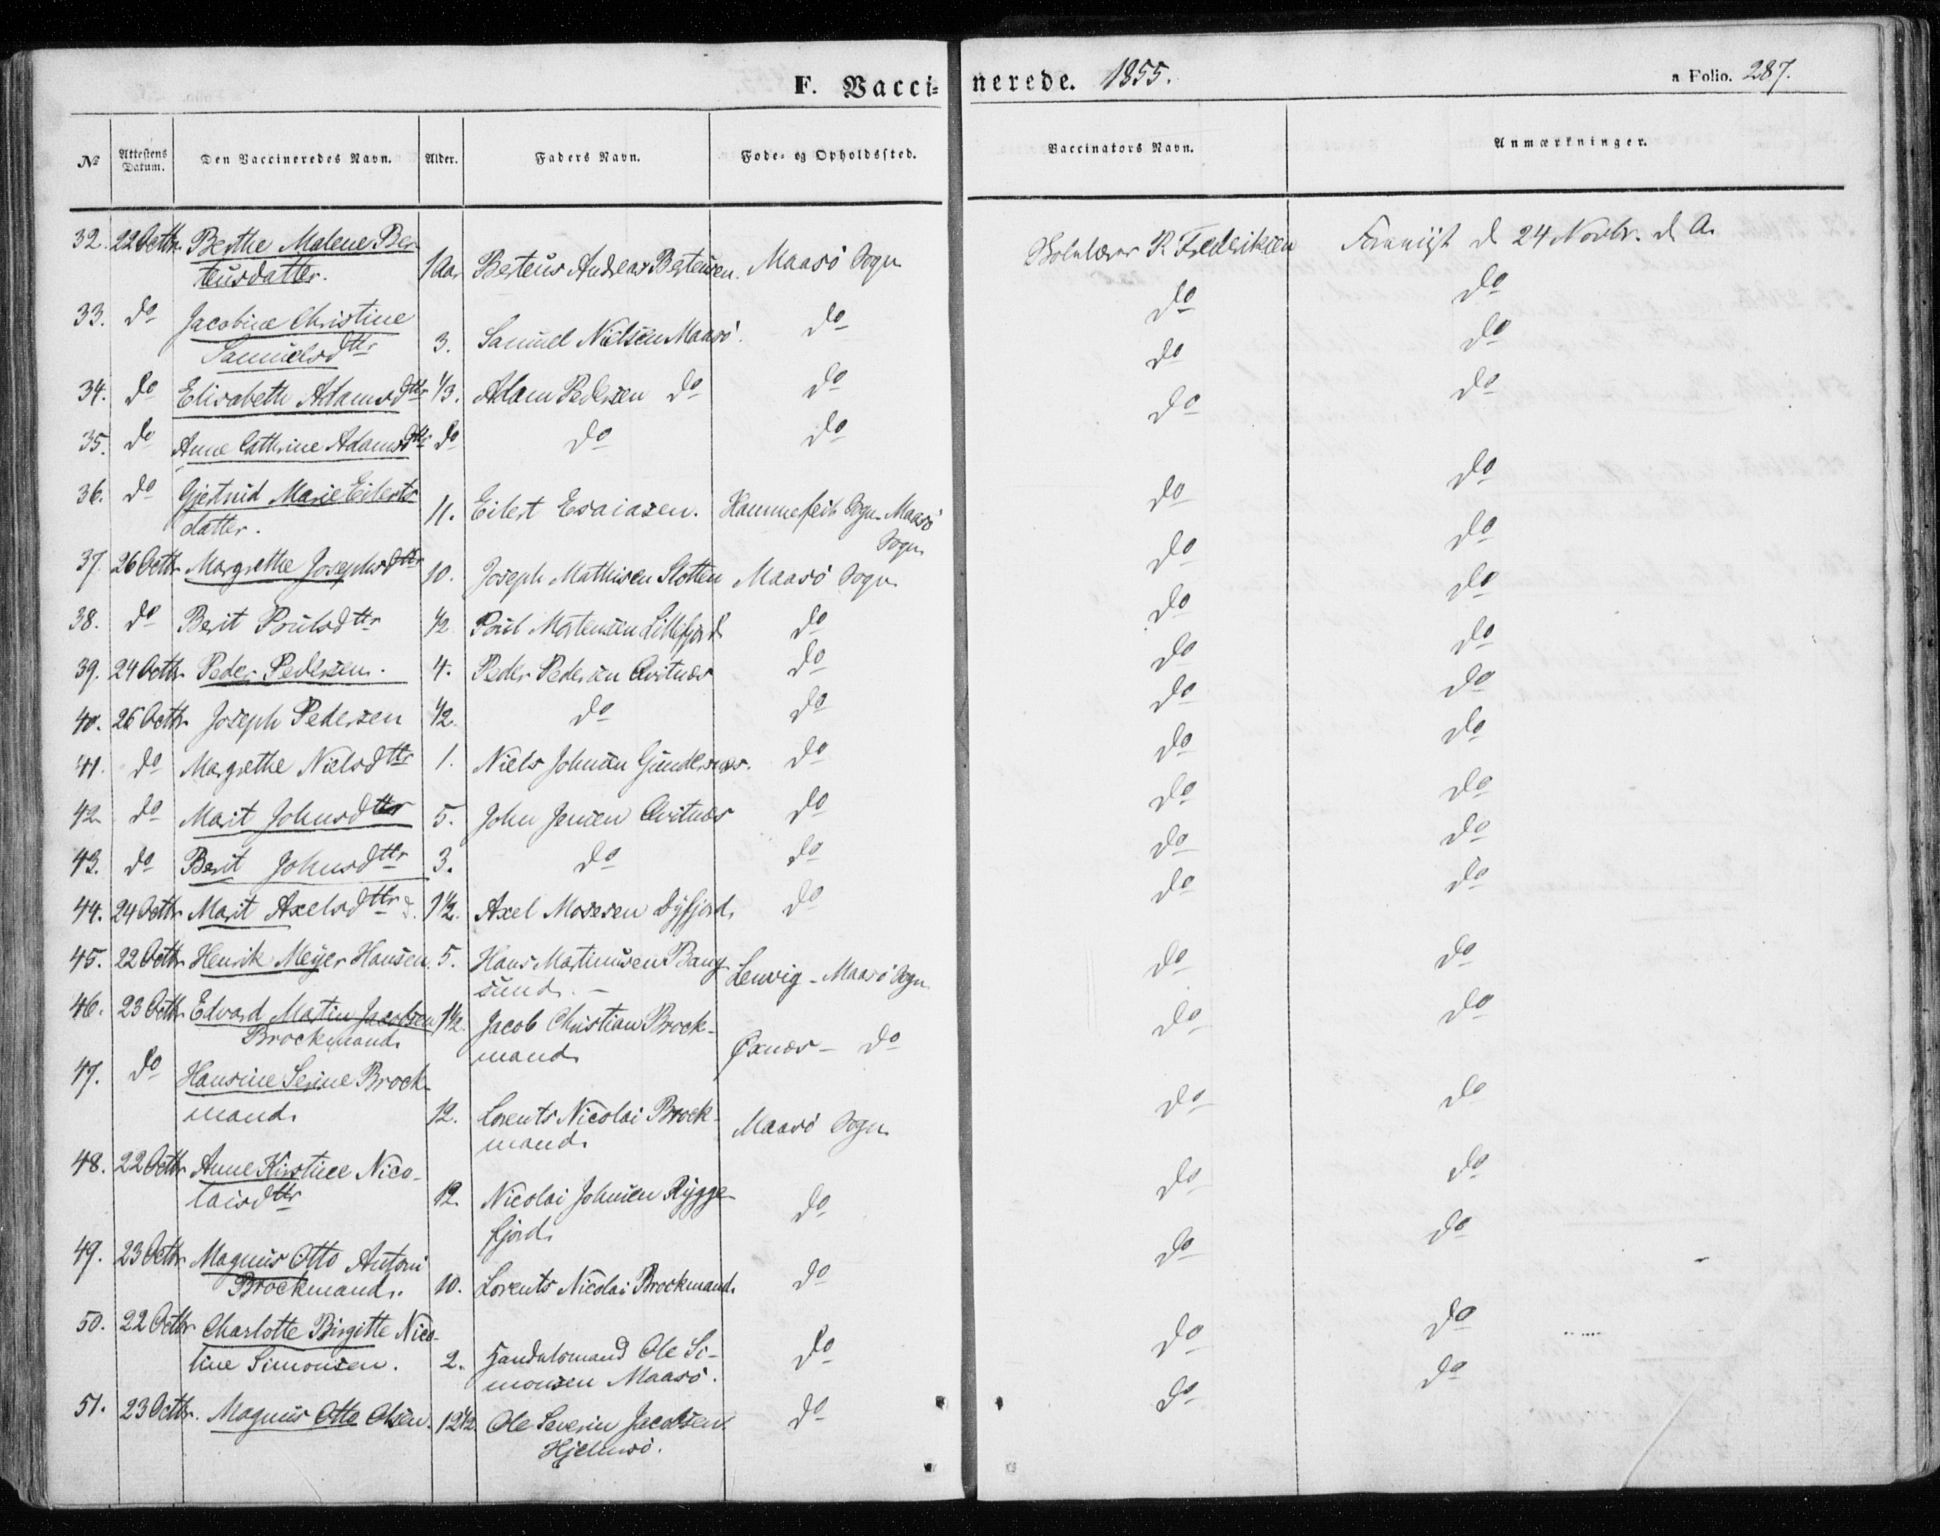 F. Vaccinerede. 1855. a Folio. 287.
№ Attestens Datum. Den Vaccineredes Navn. Alder. Faders Navn. Føde- og Opholdssted. Vaccinators Navn. Anmærkninger.
32. 22 Octbr. Berthe Malene Ber-
teusdatter. 1 Aar Berteus Andreas Berteusen. Maasö Sogn R. Frederiksen d. 24 Novbr. d. A.
33. do Jacobine Christine
Samuelsdtter 3. Samuel Nielsen Maasö. do do do
34. do Elisabeth Adamsdtter 1/3. Adam Pedersen do do do do
35. do Anne Cathrine Adamsdtter do do do do do
36. do Gjertrud Marie Eilerts-
datter. 11. Eilert Esaiasen. Hammerfest Sogn. Maasö
Sogn do do
37. 26 Octbr Margrethe Josephsdtter 10. Joseph Mathisen Slotten Maasö Sogn do do
38. do Berit Poulsdtter 1/2 Poul Mortensen Lillefjord do do do
39. 24 Octbr Peder Pedersen. 4. Peder Pedersen Qvitnæs do do do
40. 26 Octbr. Joseph Pedersen 1/2. do do do do
41. do Margrethe Nielsdtter 1. Niels Johnsen Gundersnæs. do do do
42 do Marit Johnsdtter 5. John Jensen Qvitnæs do do do
43. do Berit Johnsdtter 3. do do do do
44. 24 Octbr Marit Axelsdtter 1 1/2. Axel Mosesen Dyfjord. do do do
45. 22 Octbr Henrik Meyer Hansen. 5. Hans Martinusen Bang-
sund. Lenvig - Maasö Sogn do do
46. 23 Octbr Edvard Martin Jacobsen
Brockmand. 1 1/2. Jacob Christian Brock-
mand. Øxnæs - do do do
47. do Hansine Serine Brock-
mand. 12. Lorents Nicolai Brock-
mand. Maasö Sogn do do
48. 22 Octbr Anne Kirstine Nico-
laisdtter 12. Nicolai Johnsen Rygge-
fjord. do do do
49. 23 Octbr Magnus Otto Antoni
Brockmand. 10. Lorents Nicolai Brockmand. do do do
50. 22 Octbr Charlotte Birgitte Nico-
line Simonsen. 2. Handelsmand Ole Si-
monsen Maasö. do do do
51. 23 Octbr. Magnus Otto Olsen. 12 1/2 Ole Severin Jacobsen
Hjelmsö. do do do